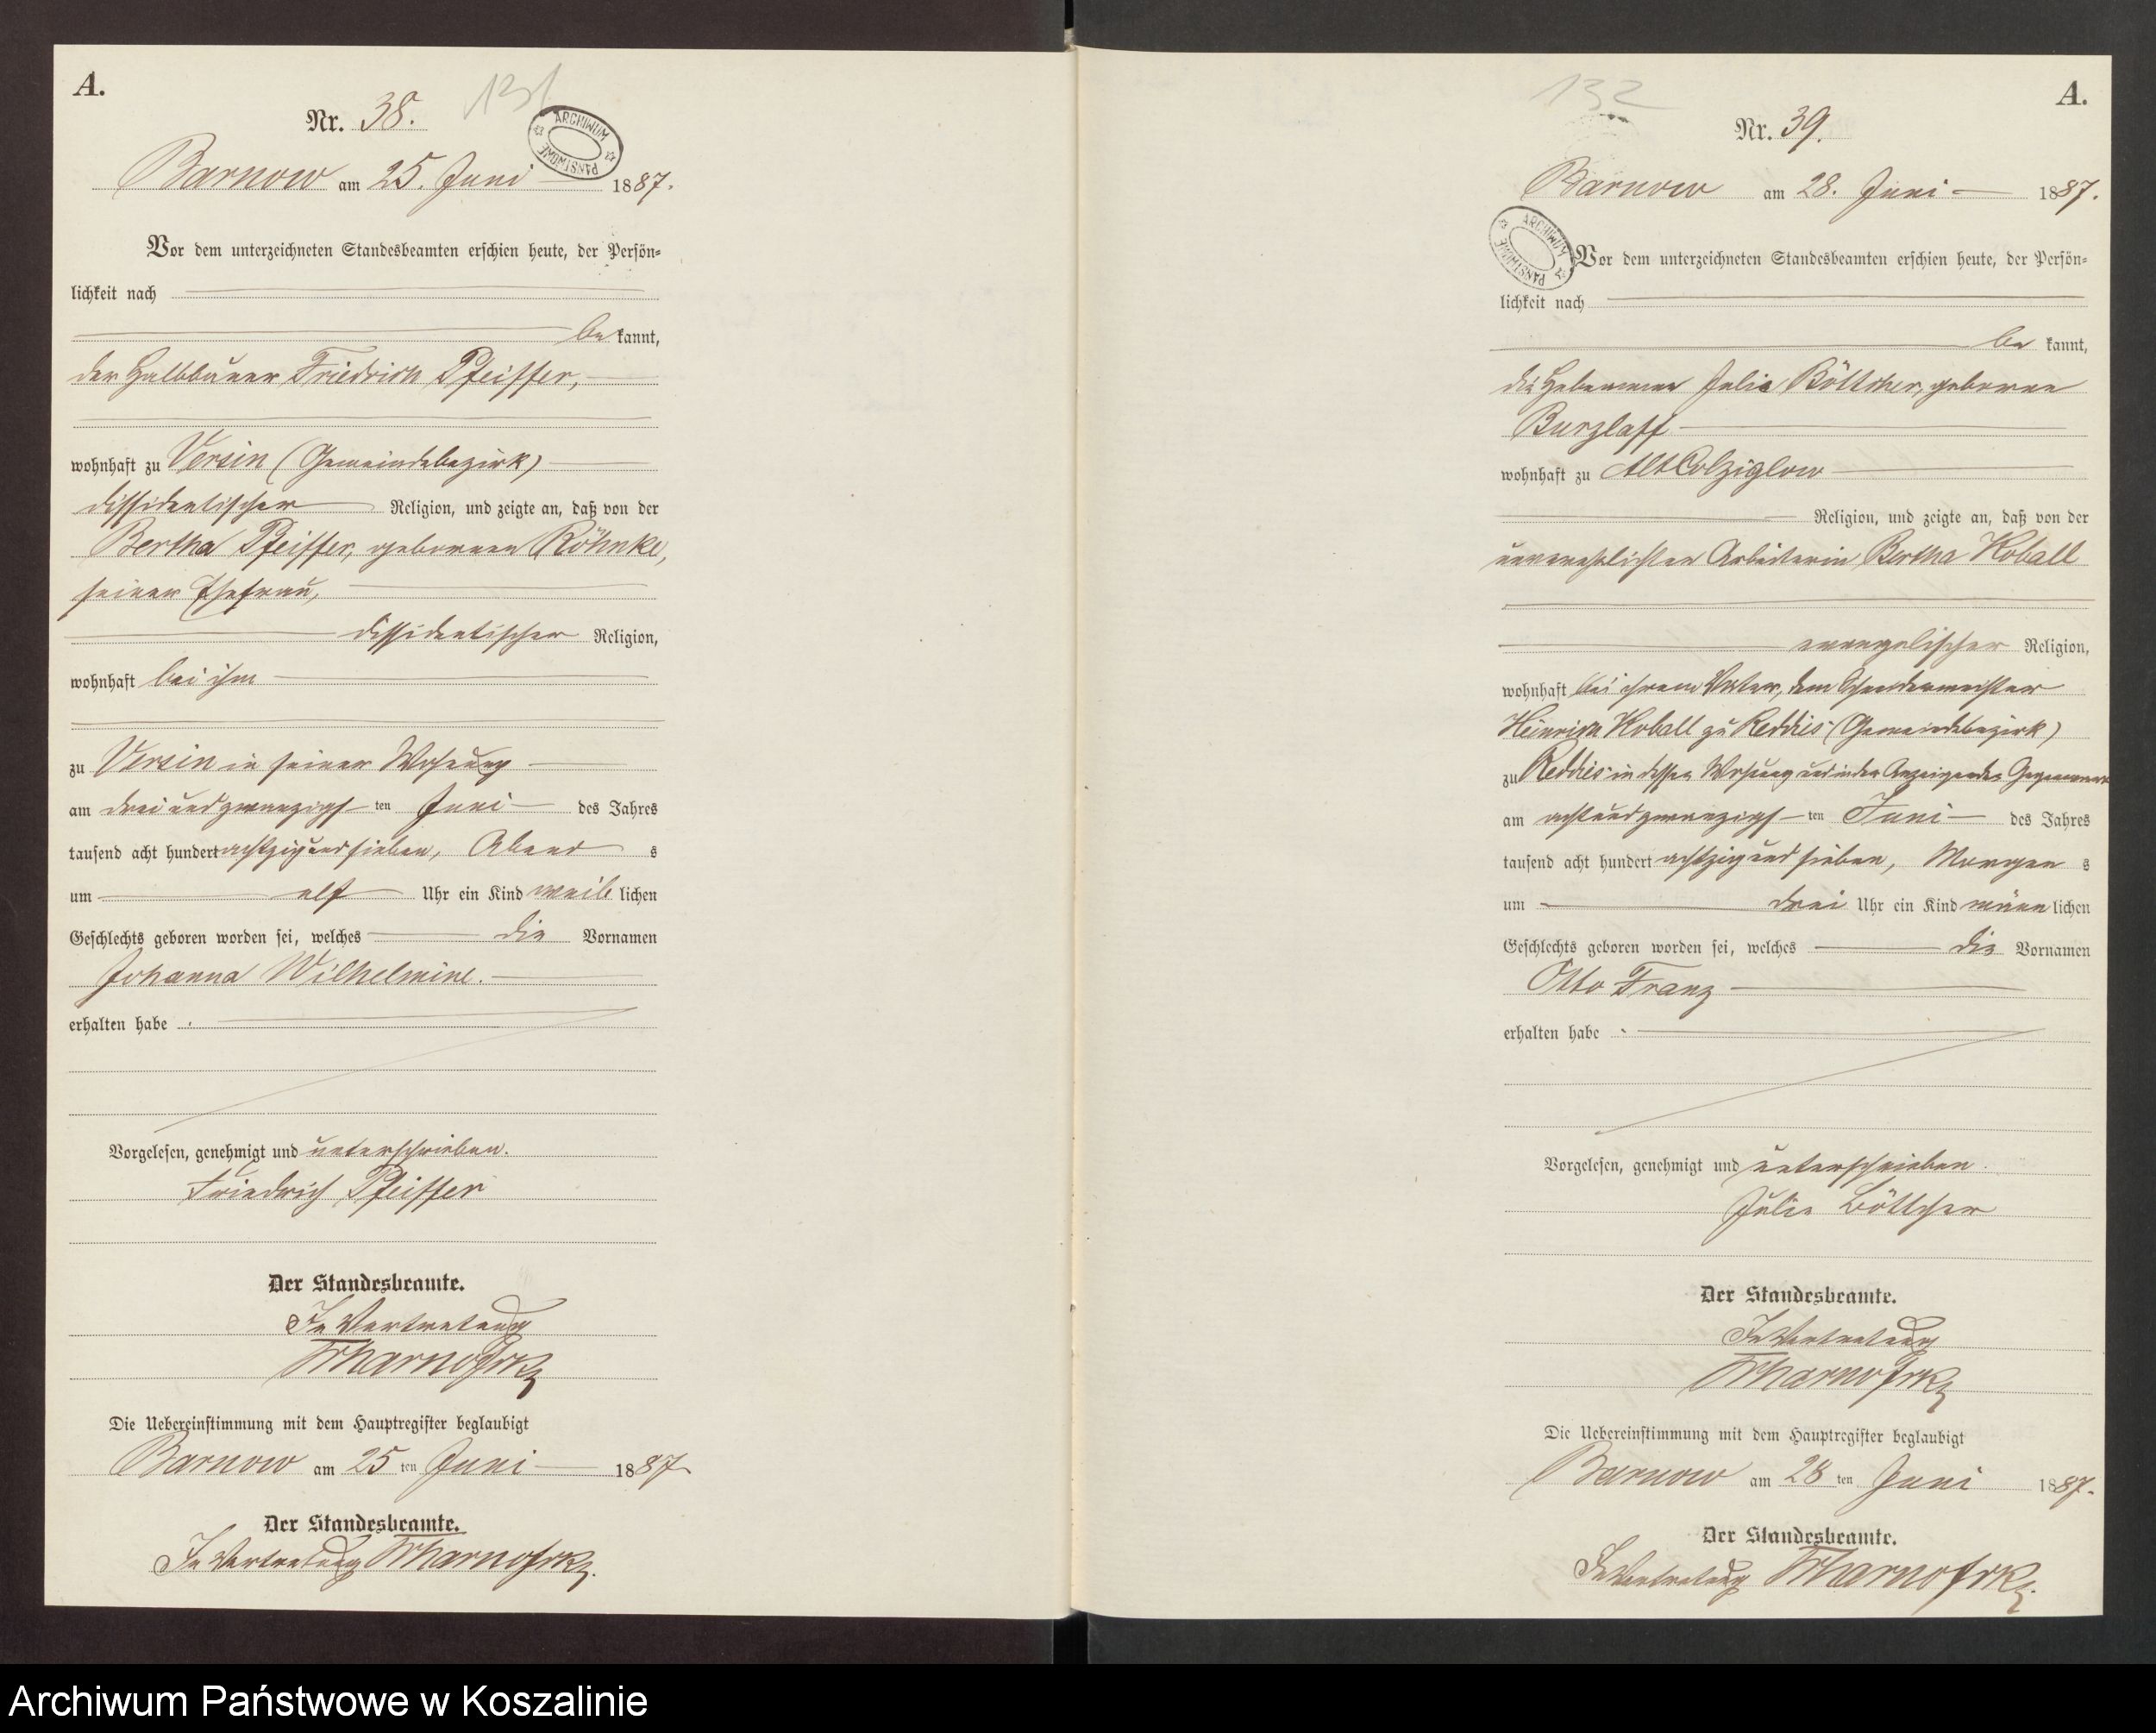 A.
131
Nr. 38.
ARCHIWUM PAŃSTWOWE
Barnow am 25. Juni 1887.
Vor dem unterzeichneten Standesbeamten erschien heute, der Persön-
lichkeit nach
be kannt,
der Halbbauer Friedrich Pfeiffer,
wohnhaft zu Versin (Gemeindebezirk)
dissidentischer Religion, und zeigte an, daß von der
Bertha Pfeiffer, geborenen Röhnke,
seiner Ehefrau,
dissidentischer Religion,
wohnhaft bei ihm
zu Versin in seiner Wohnung
am drei und zwanzigs ten Juni des Jahres
tausend acht hundert achtzig und sieben, Abend s
um elf Uhr ein Kind weib lichen
Geschlechts geboren worden sei, welches die Vornamen
Johanna Wilhelmine.
erhalten habe .
Vorgelesen, genehmigt und unterschrieben.
Friedrich Pfeiffer
Der Standesbeamte.
In Vertretung
Die Uebereinstimmung mit dem Hauptregister beglaubigt
Barnow am 25 ten Juni 1887
Der Standesbeamte.
In Vertretung
132
A.
Nr. 39.
Barnow am 28. Juni 1887.
ARCHIWUM PAŃSTWOWE
Vor dem unterzeichneten Standesbeamten erschien heute, der Persön-
lichkeit nach
be kannt,
die Hebamme Julie Böttcher, geborene
Burzlaff
wohnhaft zu Alt Colziglow
Religion, und zeigte an, daß von der
unverehelichten Arbeiterin Bertha Koball
evangelischer Religion,
wohnhaft bei ihrem Vater, dem Schneidermeister
Heinrich Koball zu Reddies (Gemeindebezirk)
zu Reddies in dessen Wohnung und in der Anzeigenden Gegenwart
am acht und zwanzigs ten Juni des Jahres
tausend acht hundert achtzig und sieben, Morgen s
um drei Uhr ein Kind männ lichen
Geschlechts geboren worden sei, welches die Vornamen
Otto Franz
erhalten habe .
Vorgelesen, genehmigt und unterschrieben.
Julie Böttcher
Der Standesbeamte.
In Vertretung
Die Uebereinstimmung mit dem Hauptregister beglaubigt
Barnow am 28 ten Juni 1887.
Der Standesbeamte.
In Vertretung
Archiwum Państwowe w Koszalinie